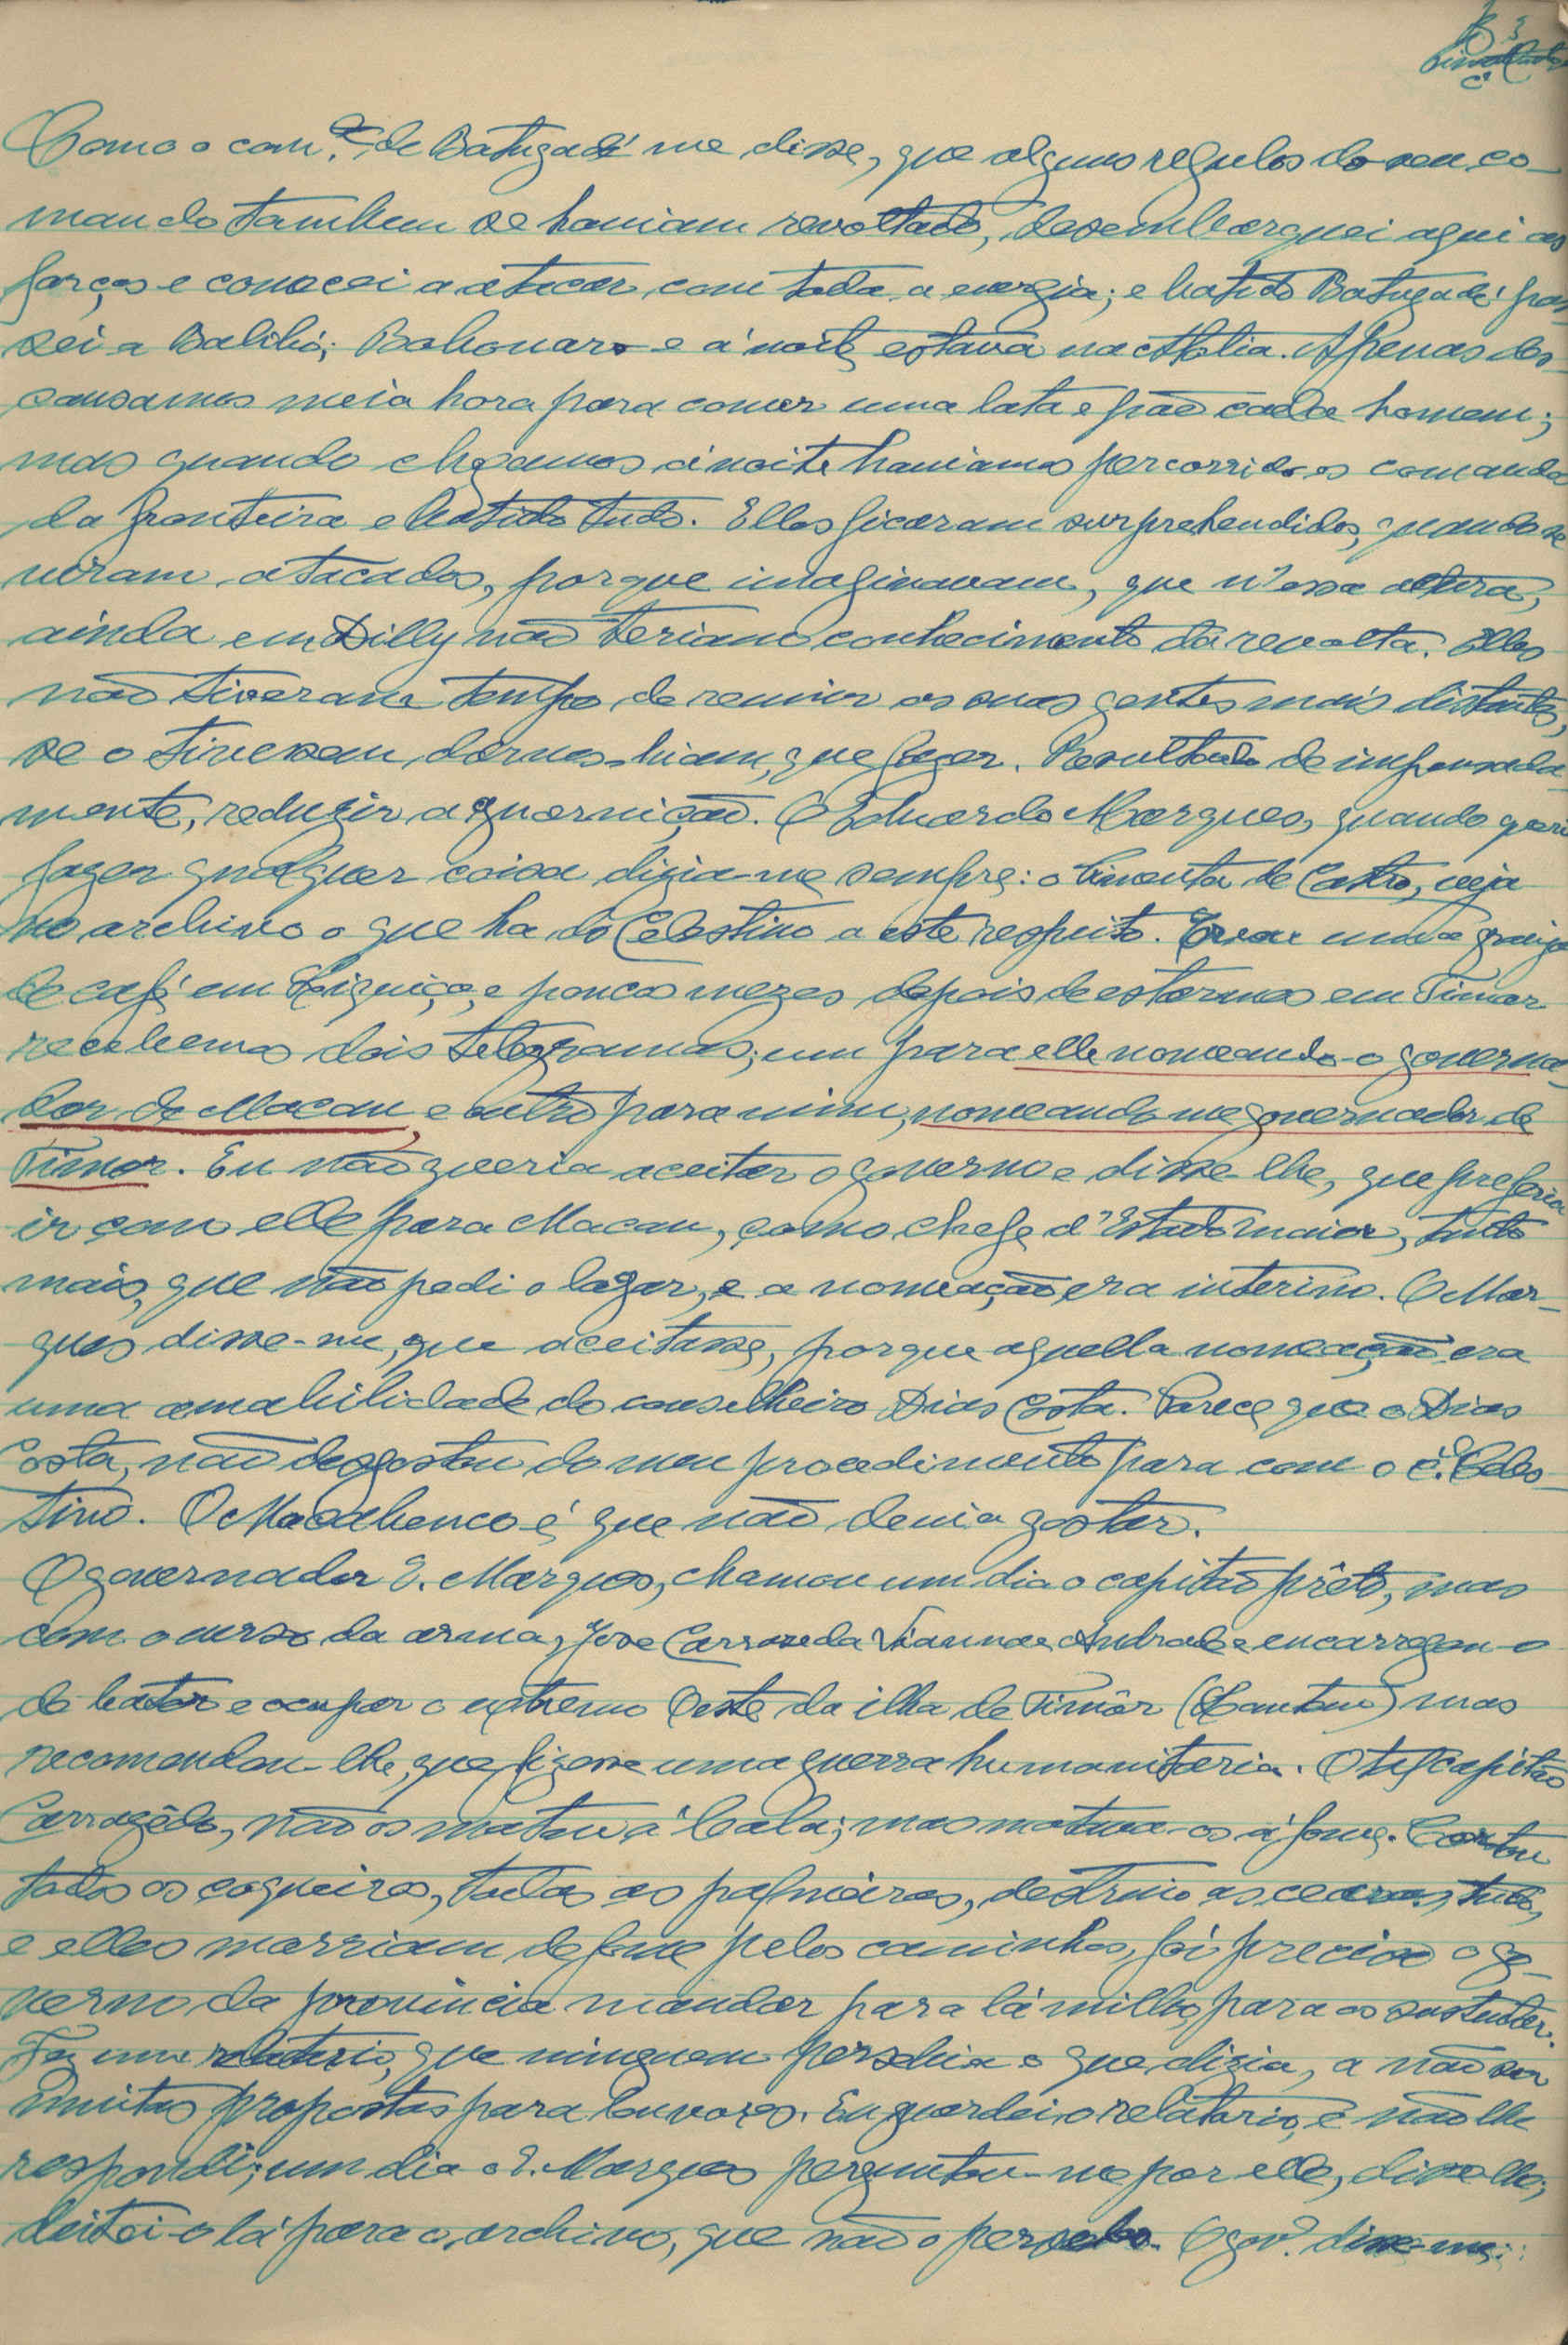 Como o com.te de Batugadé me disse, que alguns regulos do seu co-
mando tambem se haviam revoltado, desembarquei aqui as
forças e comecei a atacar com toda a energia; e batido Batugadé pas-
sei a Balibó; Bobonaro e á noite estava na Atalia. Apenas des-
cansamos meia hora para comer uma lata e pão cada homem;
mas quando chegamos á noite haviamos percorrido os comandos
da fronteira e batido tudo. Elles ficaram surprehendidos, quando se
viram atacados, porque imaginavam, que n'essa altura,
ainda em Dilly não teriam conhecimento da revolta. Elles
não tiveram tempo de reunir as suas gentes mais distantes,
se o tivessem davam-nos, que fazer. Resultado de impensada-
mente, reduzir a guarnição. O Eduardo Marques, quando queria
fazer qualquer coisa dizia-me sempre: o Pimenta de Castro, veja
no archivo o que ha do Celestino a este respeito. Creou uma granja
de café em Liquiça, e poucos mezes depois de estarmos em Timor
recebemos dois telegramas; um para elle nomeando-o governa-
dor de Macau, e outro para mim, nomeando-me governador de
Timor. Eu não queria aceitar o governo e disse-lhe, que preferia
ir com elle para Macau, como chefe d'Estado maior, tanto
mais, que não pedi o lugar, e a nomeação era interino. O Mar-
ques disse-me, que aceitasse, porque aquella nomeação era
uma amabilidade do conselheiro Dias Costa. Parece que o Dias
Costa, não desgostou do meu procedimento para com o c.el Celes-
tino. O Macahenco é que não devia gostar.
O governador E. Marques, chamou um dia o capitão prêto, mas
com o curso da arma, José Carrazeda Vianna e Andrade e encarregou-o
de bater e ocupar o extremo Oeste da ilha de Timôr (Lautem) mas
recomendou-lhe, que fizesse uma guerra humanitaria. O tal capitão
Carrazêdo, não os matou á bala; mas matava-os á fome. Cortou
todos os coqueiros, todas as palmeiras, destruio as cearas, tudo,
e elles morriam de fome pelos caminhos, foi preciso o go-
verno da provincia mandar para lá milho, para os sustentar.
Fez um relatorio, que ninguem persebia o que dizia, a não ser
muitas propostas para louvores. Eu guardei o relatorio, e não lhe
respondi; um dia o E. Marques perguntou-me por elle, disse-lhe;
deitei-o lá para o archivo, que não o persebo. O gov.or disse-me: